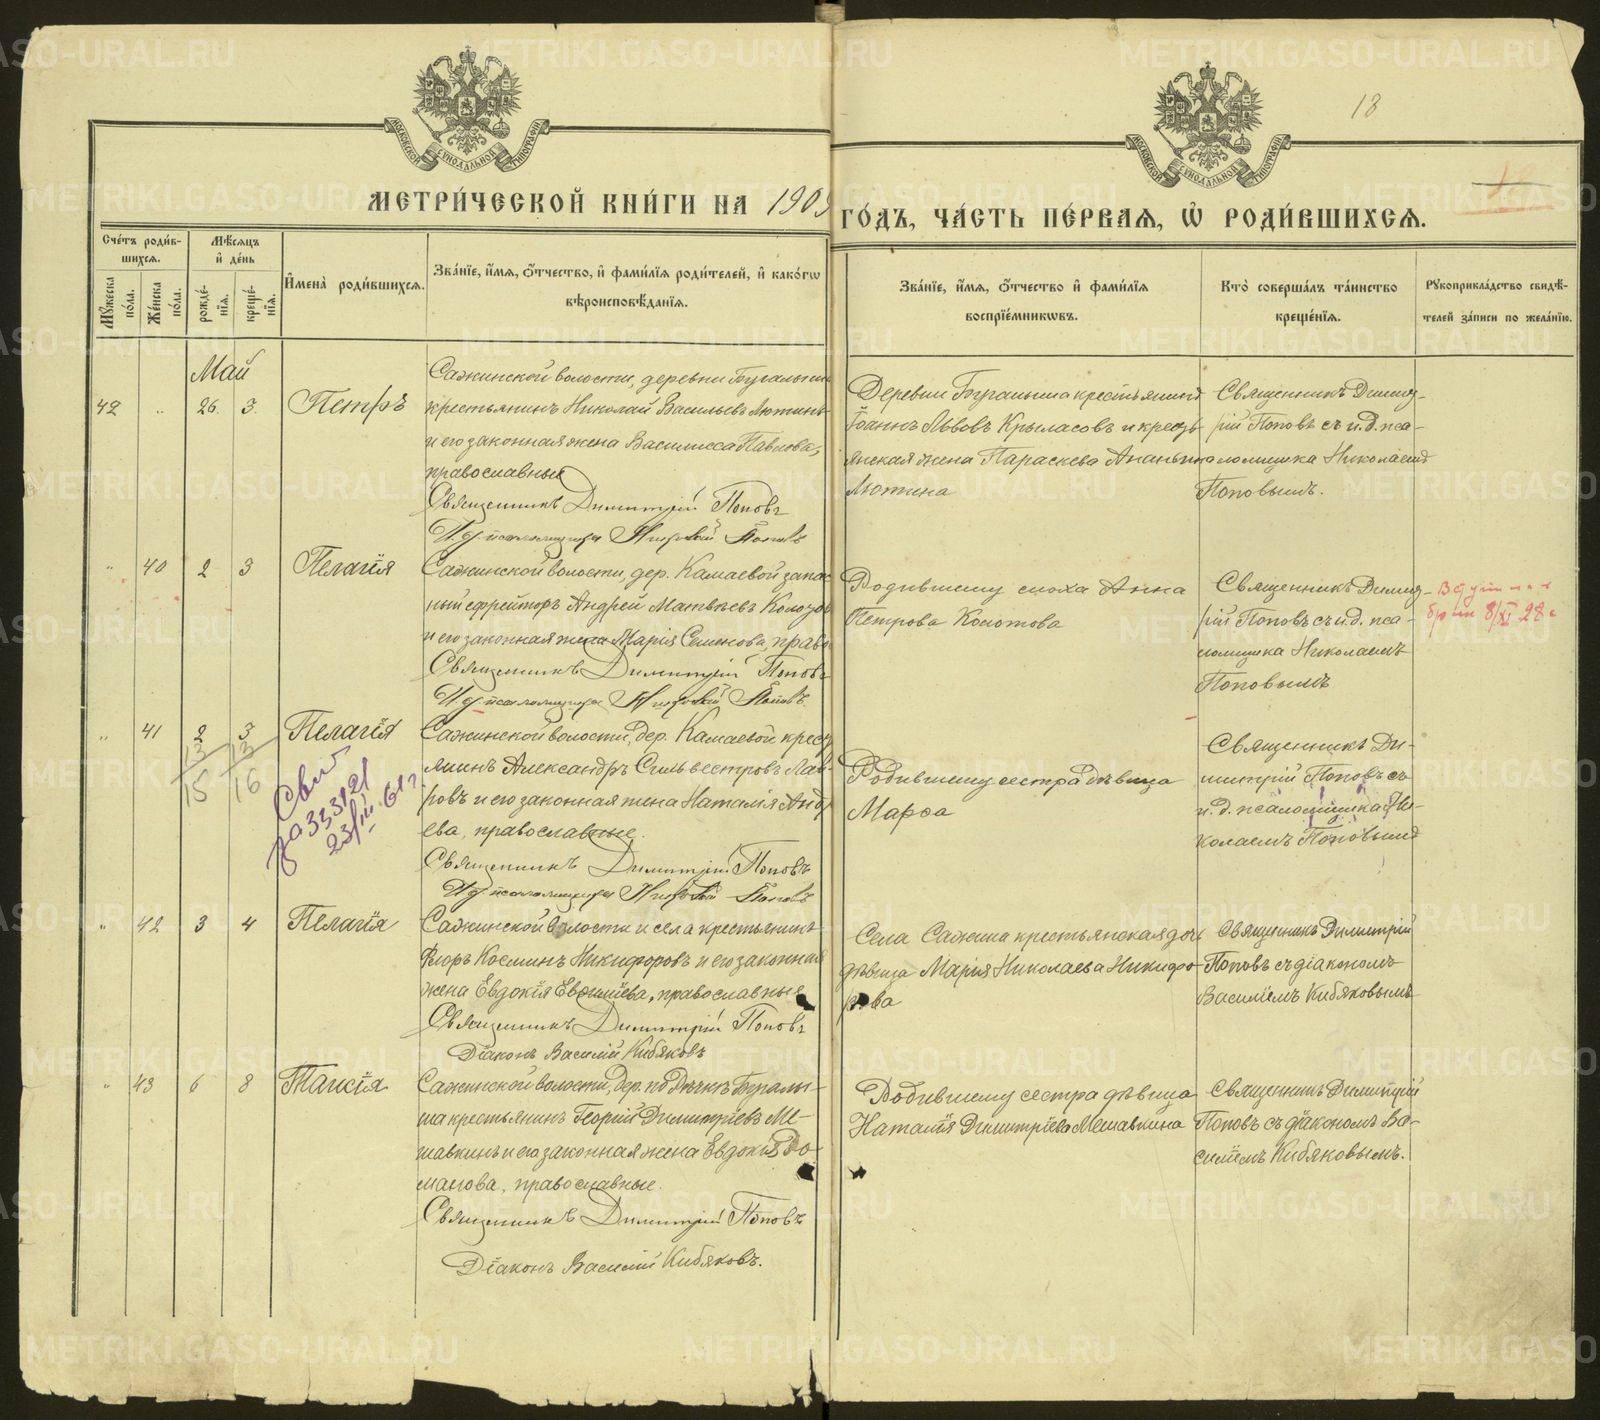 18
МЕТРИ́ЧЕСКОЙ КНИ́ГИ НА 1909 ГО́ДЪ, ЧА́СТЬ ПЕ́РВАЯ, Ѡ РОДИ́ВШИХСЯ.
Сче́тъ роди́в-
шихся.
Мѣ́сяцъ
и҆ де́нь
Мꙋ́жеска по́ла.
Же́нска по́ла.
рожде́-
нїя.
креще́-
нїя.
И҆мена̀ роди́вшихся.
Зва́нїе, и҆́мя, ѻ҆́тчество, и҆ фами́лїя роди́телей, и҆ како́гѡ
вѣроисповѣ́данїя.
Зва́нїе, и҆́мя, ѻ҆́тчество и҆ фами́лїя
воспрїе́мникѡвъ.
Кто̀ соверша́лъ та́инство
креще́нїя.
Рꙋкоприкла́дство свидѣ́-
телей за́писи по жела́нїю.
Май
42 " 26. 3. Петръ
Сажинской волости, деревни
крестьянинъ Николай Васильевъ Лютинъ
и его законная жена Василисса Павлова,
православные
Священникъ Димитрій Поповъ
И. д. псаломщика Николай Поповъ
Деревни крестьянинъ
Іоаннъ Львовъ Крыласовъ и кресть
янская жена Параскева Ананьина
Лютина
Священникъ Димит-
рій Поповъ съ и. д. пса-
ломщика Николаемъ
Поповымъ.
" 40 2 3 Пелагія
Сажинской волости, дер. Камаевой запас
ный ефрейторъ Андрей Матвѣевъ
и его законная жена Марія Семенова, право
Священникъ Димитрій Поповъ
И. д. псаломщика Николай Поповъ
Родившему сноха Анна
Петрова Колотова
Священникъ Димит-
рій Поповъ съ и. д. пса-
ломщика Николаемъ
Поповымъ
8/XI 28 г
" 41 2 3 Пелагія
13 13
15 16
за 333121
23/III 61 г
Сажинской волости, дер. Камаевой крест
янинъ Александръ Сильвестровъ Лав-
ровъ и его законная жена Наталія Анд
ева, православные.
Священникъ Димитрій Поповъ
И. д. псаломщика Николай Поповъ
Родившему сестра дѣвица
Марѳа
Священникъ Ди-
митрій Поповъ съ
и. д. псаломщика Ни-
колаемъ Поповымъ
" 42 3 4 Пелагія
Сажинской волости и села крестьянинъ
Флоръ Косминъ Никифоровъ и его законная
жена Евдокія, православные
Священникъ Димитрій Поповъ
Діаконъ Василій Кибяковъ
Села Сажина крестьянская дочь
дѣвица Марія Николаева Никифо-
рова
Священникъ Димитрій
Поповъ съ діакономъ
Василіемъ Кибяковымъ
" 43 6 8 Таисія
Сажинской волости, дер. по рѣчкѣ Бугалы-
ша крестьянинъ Георгій Димитріевъ Ме-
шавкинъ и его законная жена Евдокія Ро-
манова, православные.
Священникъ Димитрій Поповъ
Діаконъ Василій Кибяковъ.
Родившему сестра дѣвица
Наталія Димитріева Мешавкина
Священникъ Димитрій
Поповъ съ діакономъ Ва-
силіемъ Кибяковымъ.
METRIKI.GASO-URAL.RU